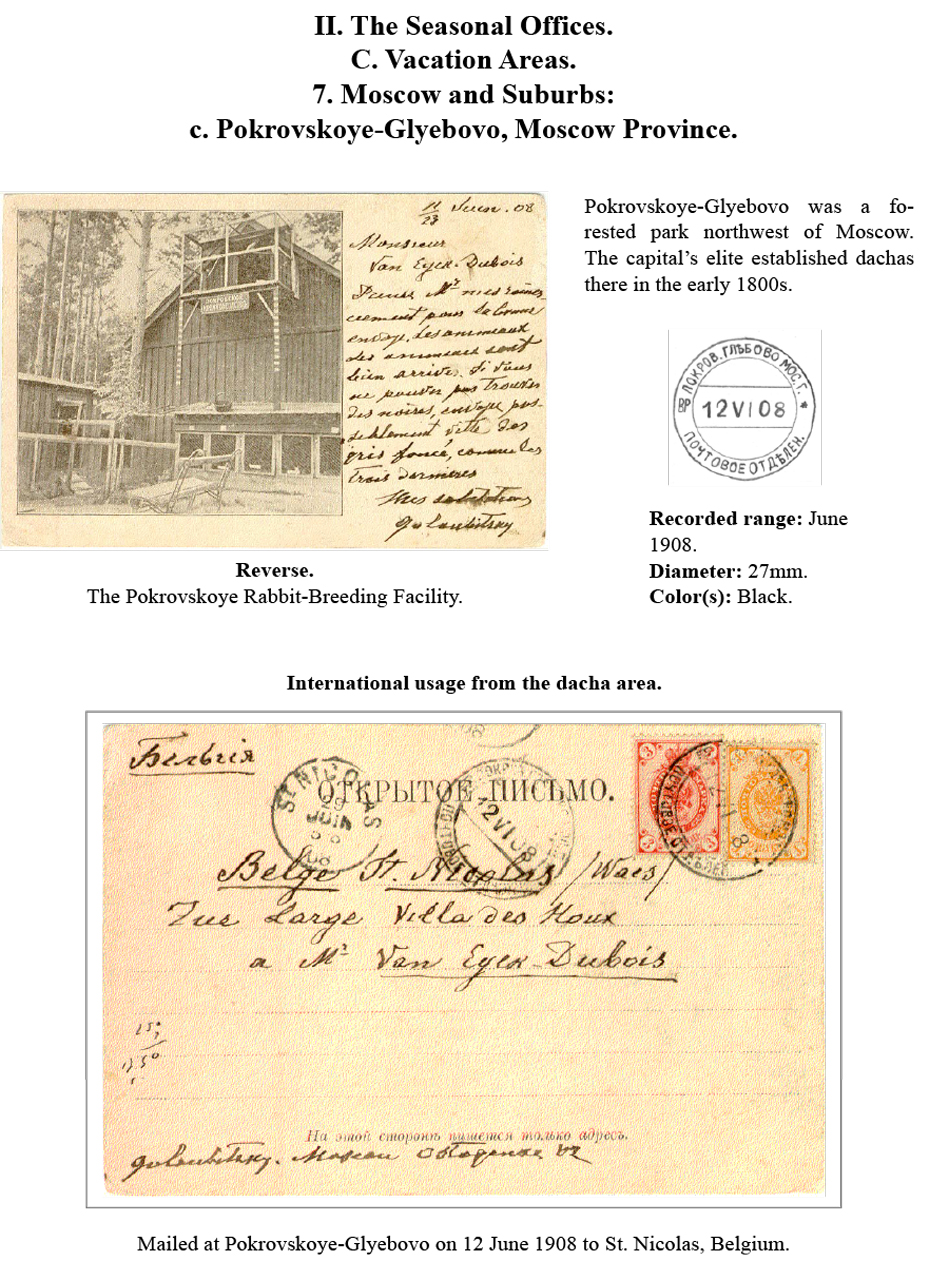 II. The Seasonal Offices.
C. Vacation Areas.
7. Moscow and Suburbs:
c. Pokrovskoye-Glyebovo, Moscow Province.
11/23 Juin. 08
Monsieur
Van Eyck-Dubois
pour la bonne
envoye, les animeaux
des animeaux sont
bien arrives. Si vous
ne pouvez pas trouver
des noires, envoye pos-
des
gris foncé, comme les
trois dernieres
Mes salutations
Goloubitsky
Pokrovskoye-Glyebovo was a fo-
rested park northwest of Moscow.
The capital’s elite established dachas
there in the early 1800s.
ПОКРОВ. ГЛѢБОВО МОС. Г.
ВР
12 VI 08
*
ПОЧТОВОЕ ОТДѢЛЕН.
Recorded range: June
1908.
Diameter: 27mm.
Color(s): Black.
Reverse.
The Pokrovskoye Rabbit-Breeding Facility.
International usage from the dacha area.
Бельгія
ST NICOLAS
JUIN
ОТКРЫТОЕ ПИСЬМО.
12 VI 08
3
3
Belge St. Nicolas (Waes)
Rue Large Villa des Houx
a Mr Van Eyck-Dubois
На этой сторонѣ пишется только адресъ.
Goloubitsky. Moscou
Mailed at Pokrovskoye-Glyebovo on 12 June 1908 to St. Nicolas, Belgium.